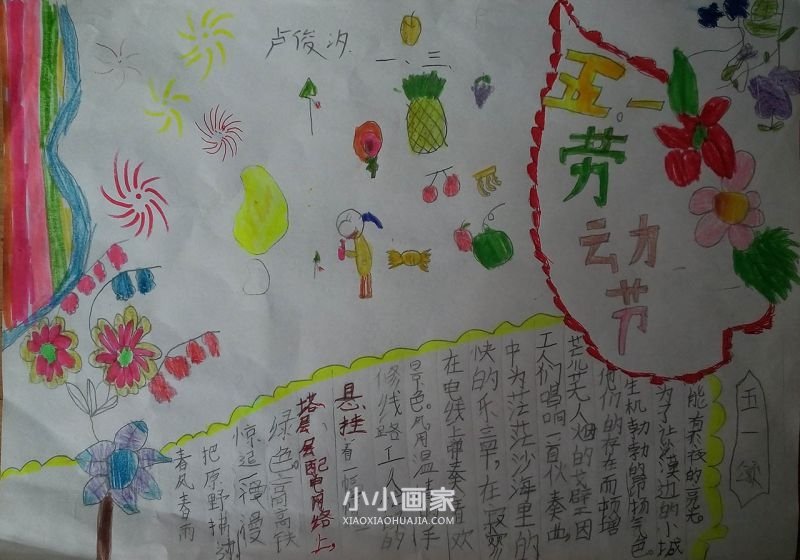 卢俊汐
一、三、
五.一
劳
动
节
五一
能有夜的亮光。
为了让沙漠边的小城
生机勃勃的昂扬气色
他们的存在而频增
茫茫无人烟的戈壁因
工人们唱响一首伏奏曲,
中为茫茫沙海里的
快的乐章,在寂寞
在电线上弹奏狂欢
景色。风用温手
修线路工人的
悬挂着一幅
塔层层配电网络上,
绿色高高铁
惊造一幅漫
把原野描
春风春雨
小小画家
XIAOXIAOHUAJIA.COM